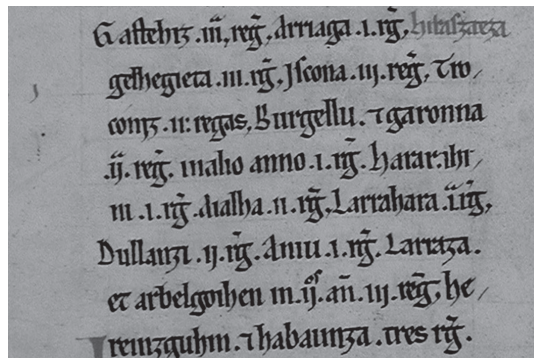 Gastehiz .iii. reg̃, Arriaga .i. rg̃,
gelhegieta .iii. rg̃. Iscona .iii. reg̃, ⁊ ro/
coniz .ii: regas, Burgellu . ⁊ garonna
.ii. reg̃. in alio anno .i. rg̃. harar.ihi/
in .i. rg̃. aialha .ii. rg̃, Larrahara .ii. rg̃,
Dullanzi .ii. rg̃. Aniu .i. rg̃. Larraza.
et arbelgoihen in .iiᵒˢ. añ. iii. reg̃, he/
reinzguhin . ⁊ habaunza . tres rg̃.